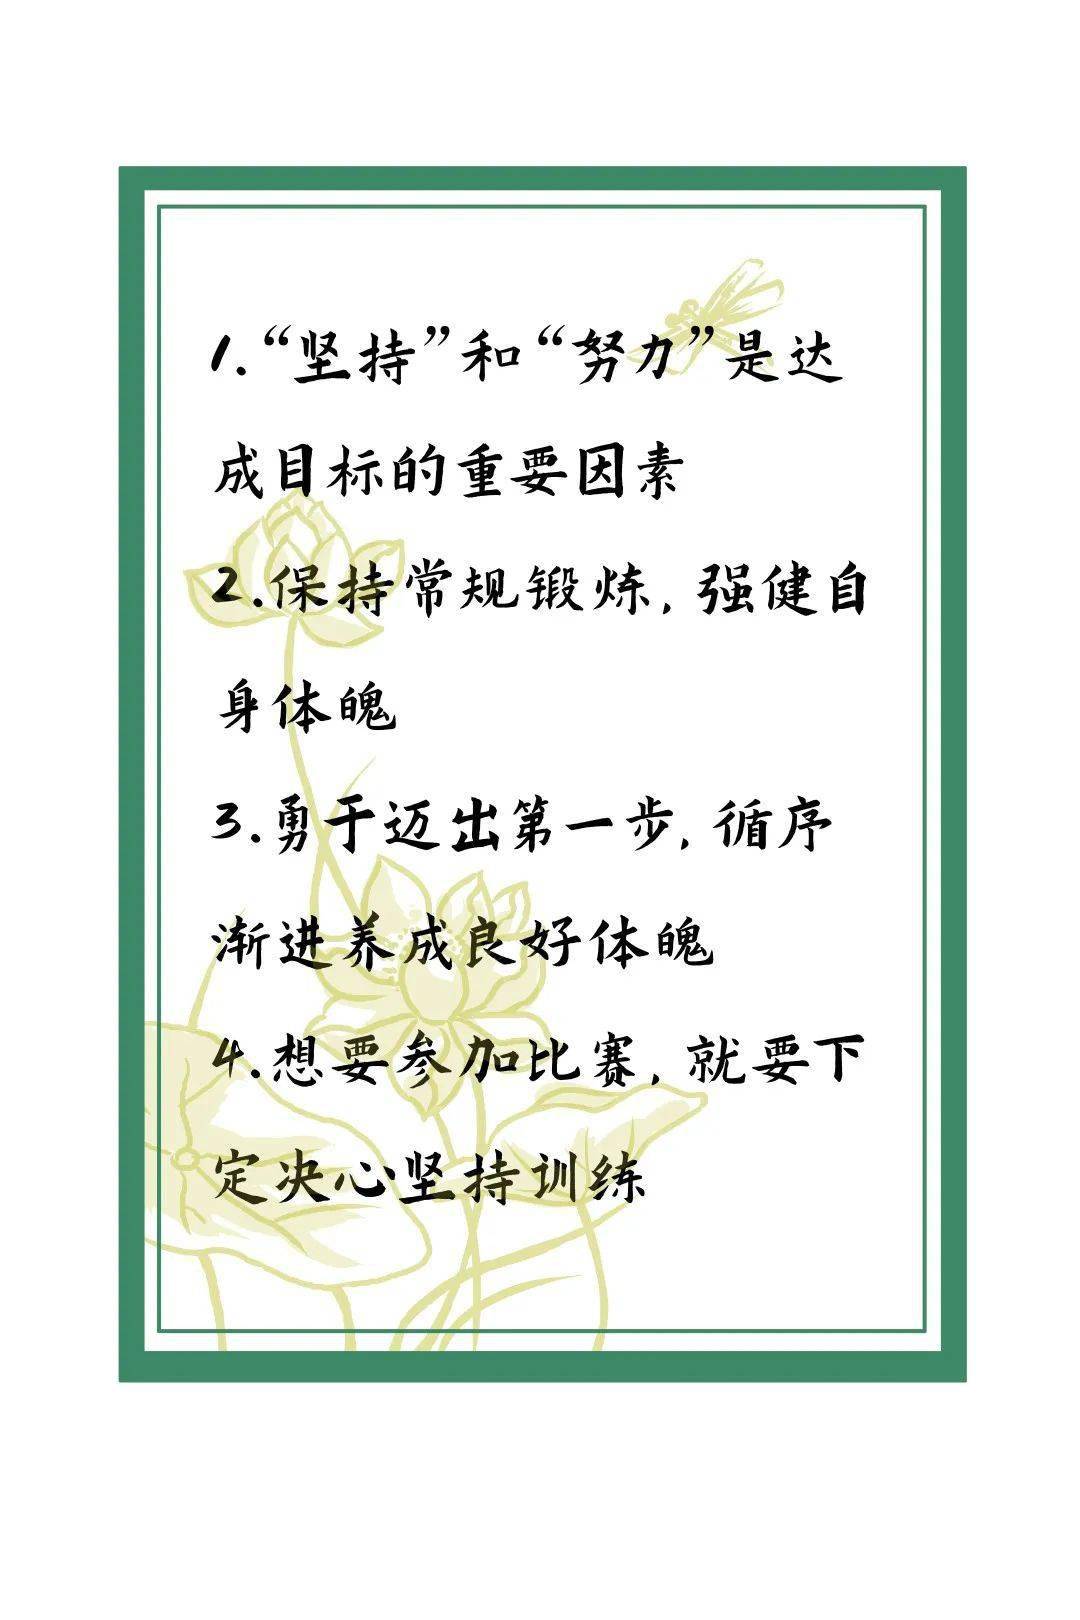 1.“坚持”和“努力”是达
成目标的重要因素
2.保持常规锻炼，强健自
身体魄
3.勇于迈出第一步，循序
渐进养成良好体魄
4.想要参加比赛，就要下
定决心坚持训练